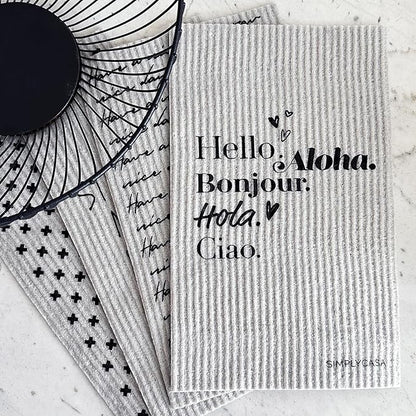 Hello.
Aloha.
Bonjour.
Hola.
Ciao.
SIMPLYCASA
Have a
nice day
Have a
nice
Have a
nice
Have
nice
Have
nice
Have